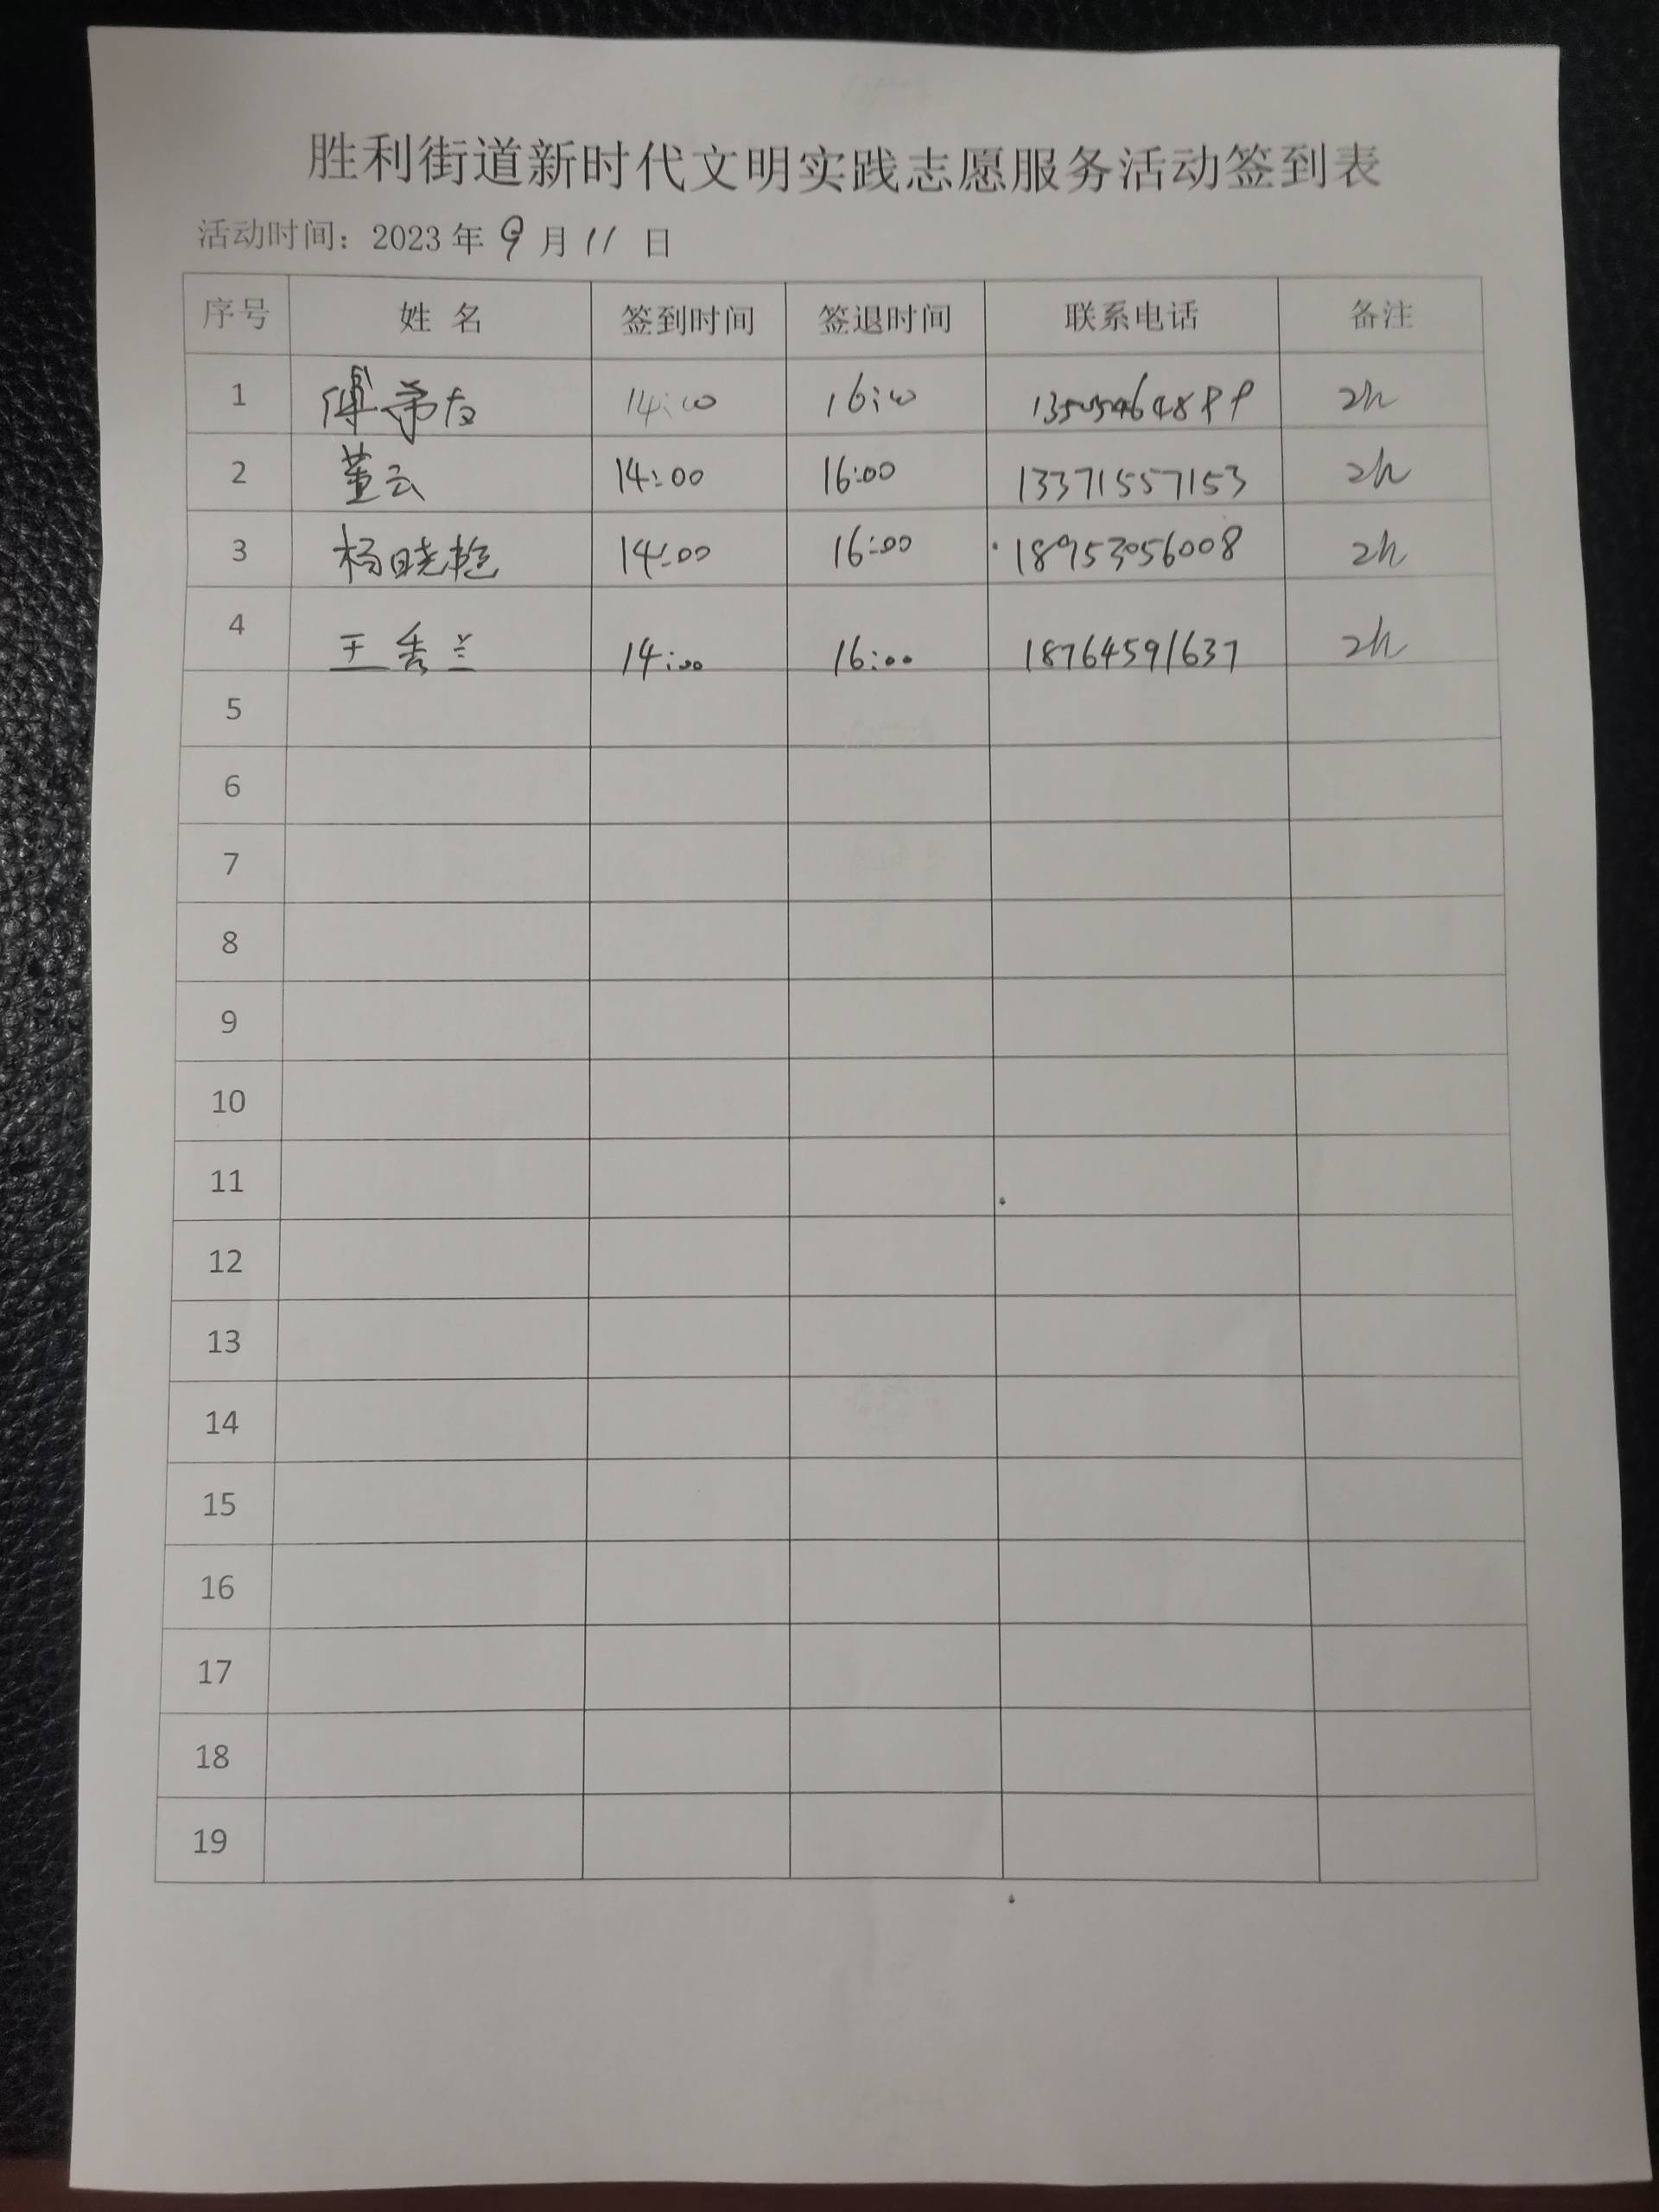 胜利街道新时代文明实践志愿服务活动签到表
活动时间：2023 年 9 月 11 日
序号 姓 名 签到时间 签退时间 联系电话 备注
1 傅 14:00 16:00 2h
2 董云 14:00 16:00 13371557153 2h
3 杨晓艳 14:00 16:00 18953056008 2h
4 王秀兰 14:00 16:00 18764591637 2h
5
6
7
8
9
10
11
12
13
14
15
16
17
18
19